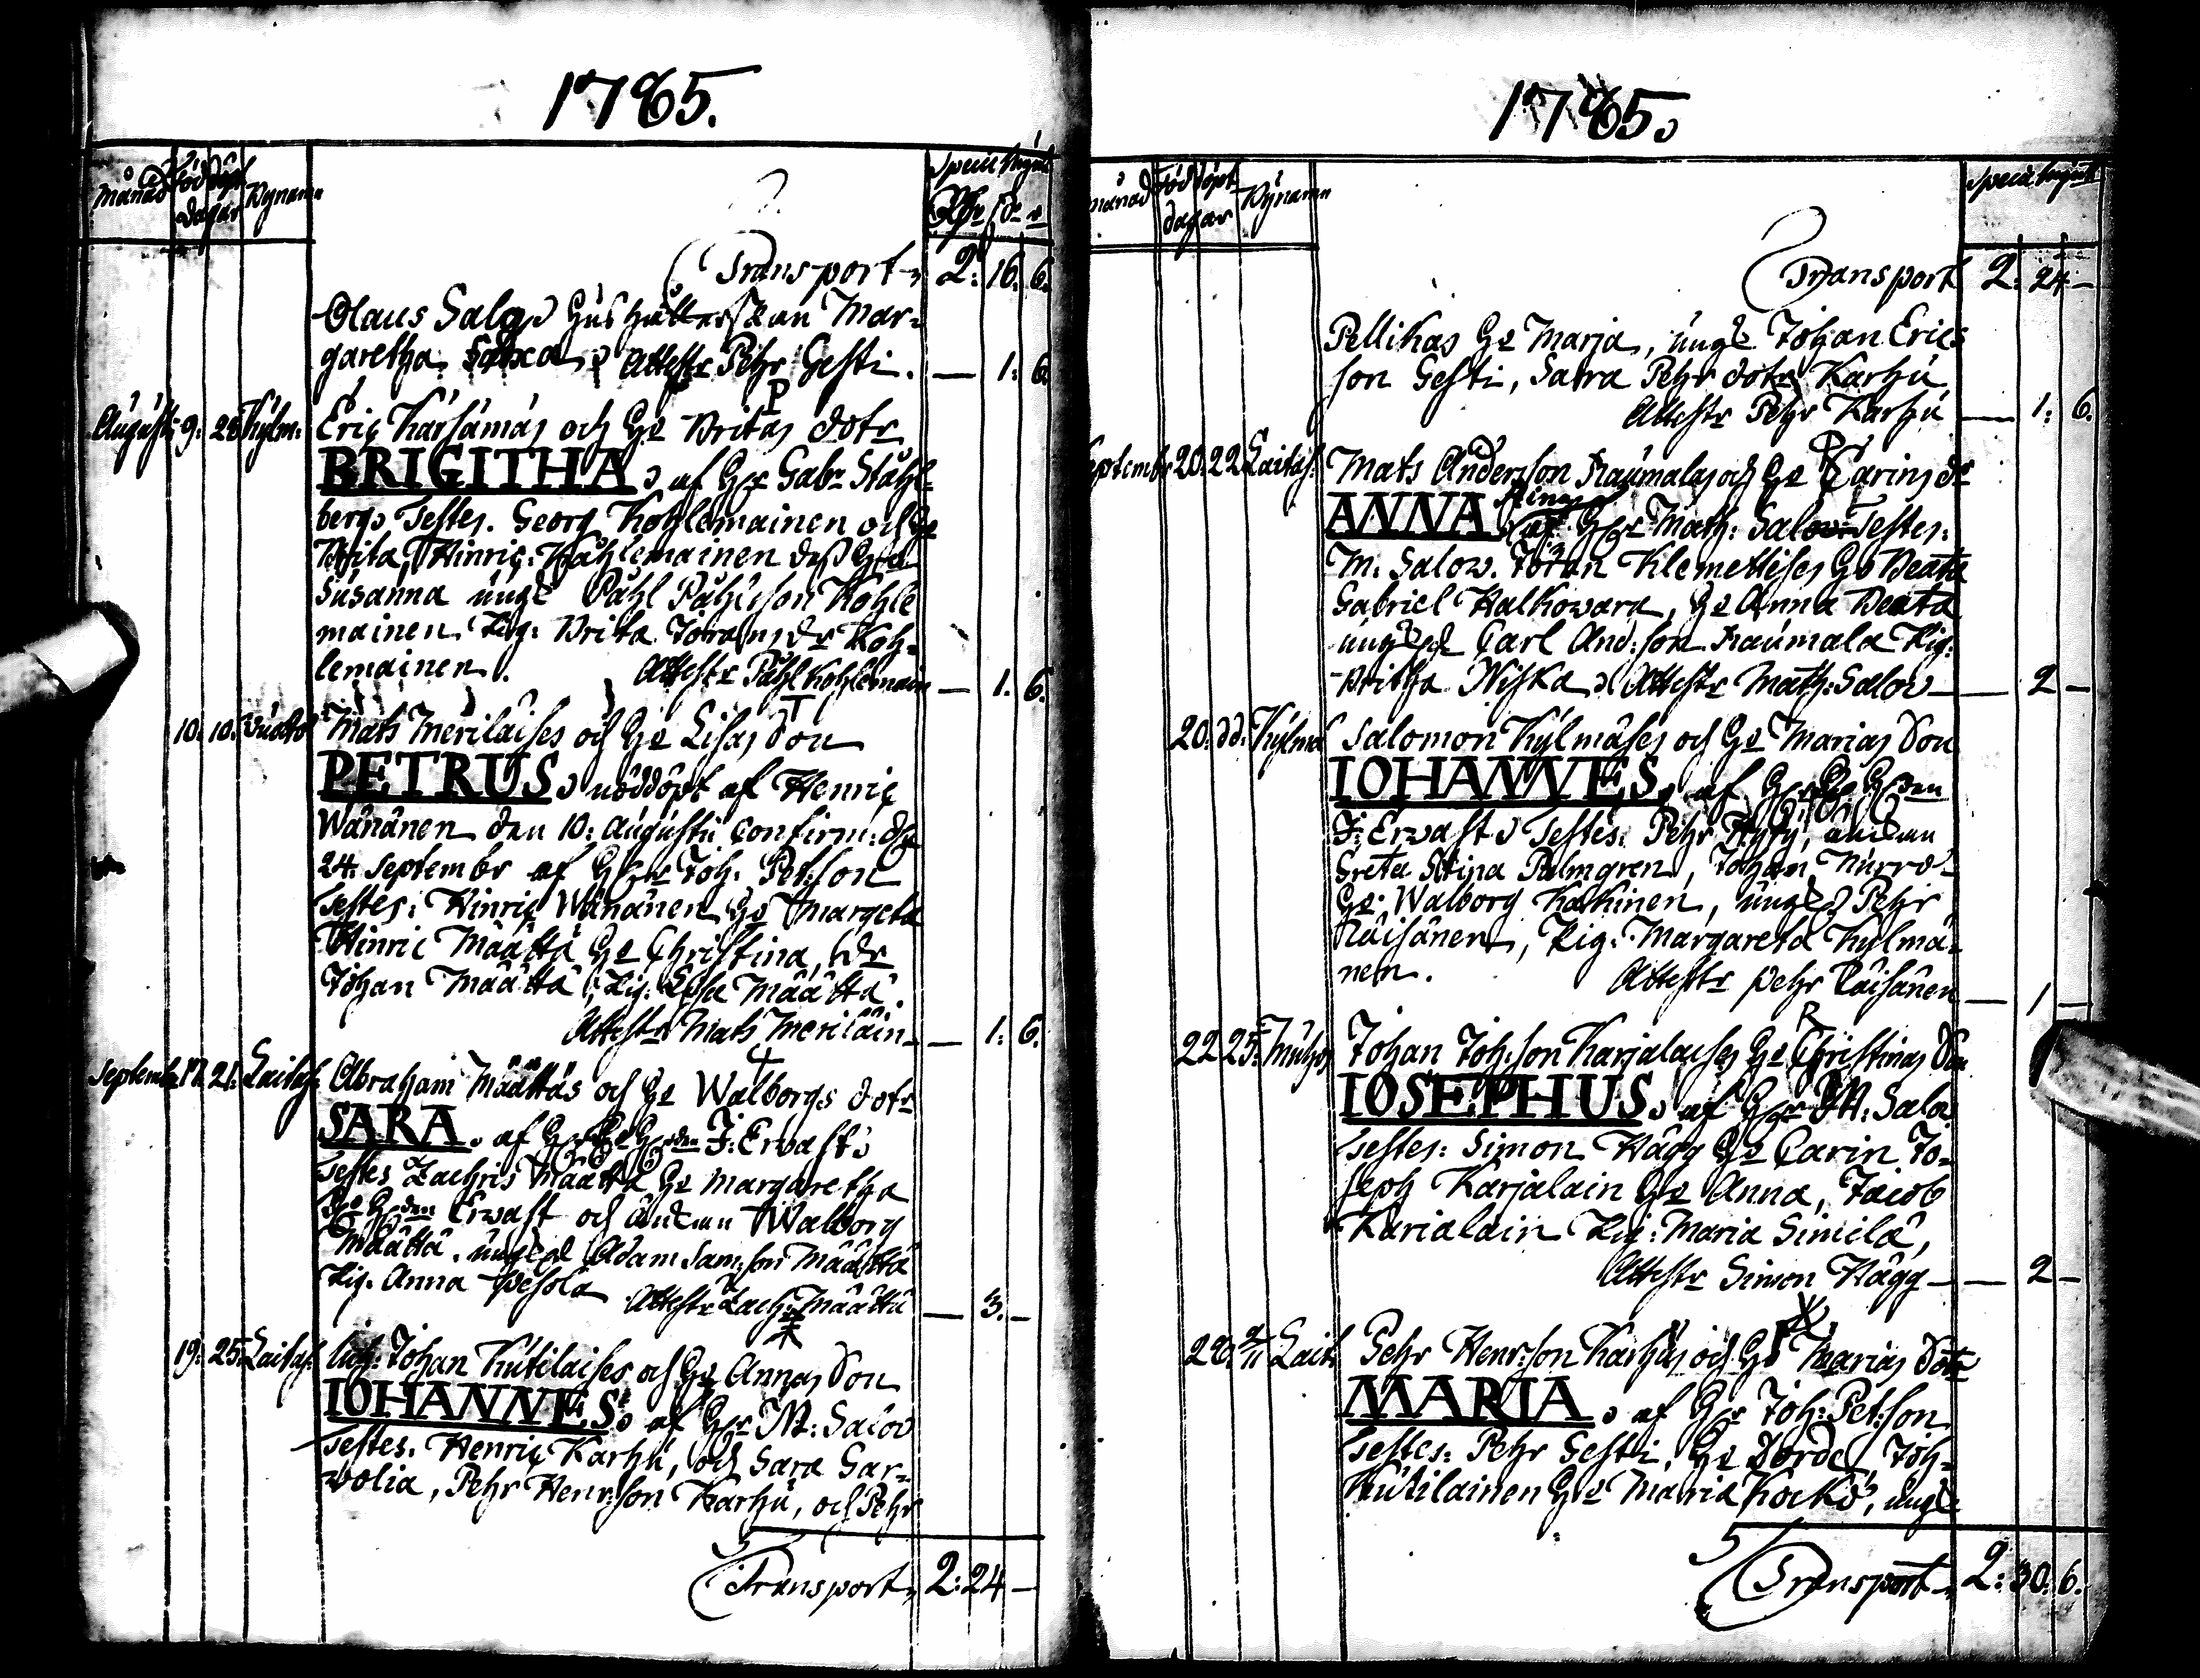 1785.
Månad
Född
Döpt
dagar
Bynamn
Transport 2. 16. 6.
Olaus Salov Hushållerskan Mar-
garetha Attestr Pehr Gesti. — 1. 6.
Augusti 9. 28 Kylm: Eric Karsämäs och H:e Britas dotr
BRIGITHA af H:r Gabr. Ståhl-
berg. Testes. Georg Kohlemainen och H:e
Brita, Hinric Kåhlemainen dess H:u
Susanna ungk Påhl Påhlsson Kohle
mainen. Pig: Brita Joransdr Koh-
lemainen. Attestr Påhl Kohlemain — 1. 6.
10. 10. Vuotto Mats Meriläises och H:e Lisas Son
PETRUS nöddöpt af Henric
Wänänen den 10: Augusti Confirm: d
24 September af H:r Joh. Petson
Testes: Hinric Wänänen H:e Margeta
Hinric Määttä H:e Christina, dr
Johan Määttä, Pig: Lisa Määttä.
Attestr Mats Meriläin — 1. 6.
September 17. 21. Laitas: Abraham Määttäs och H:e Walborgs dotr
SARA. af J: Erwast
Testes Zachris Määttä H:e Margaretha
Erwast och änkan Walborg
Määttä. ungk Adam Sam:son Määttä
Pig. Anna Pesola Attestr Zach: Määttä — 3. —
19. 25. Laitas: Johan Kutilaises och H:e Annas Son
IOHANNES. af H:r M: Salov
Testes. Henric Karhu, och Sara Sar-
wolia, Pehr Henr:son Karhu, och Pehr
Transport 2. 24 —
1785.
månad
Född
Döpt
dagar
Bynamn
Transport 2. 24 —
Pellikas H:e Marja, ungk Johan Erics
son Gesti, Satra Pehr dotr Karhu
Attestr Pehr Karhu — 1. 6.
September 20. 22 Laitas: Mats Andersson Raumalas och H:e Carins dr
ANNA af H:r Math: Salov Testes:
M. Salov. Joran Klemettises H:e Beata
Gabriel Halkowara, H:e Anna Beata
ungk Carl And:son Raumala Pig:
Britha Niska Attestr Math: Salov — 2 —
20. dd: Kylmä Salomon Kylmäses och H:e Marias Son
IOHANNES. af
J: Erwast Testes: Pehr Hyry, änkan
Greta Stina Palmgren, Johan Nirro
H:e Walborg Karhinen, ungk Pehr
Räisänen, Pig: Margareta Kylmä-
nen. Attestr Pehr Räisänen — 1 —
22 25. Muhos Johan Joh:son Karjalaises H:e Christinas Son
IOSEPHUS. af H:r M: Salov
Testes: Simon Hägg H:e Carin Jo-
seph Karjalain H:e Anna, Jacob
Karialain Pig: Maria Simila,
Attestr Simon Hägg — 2 —
28. 2/11 Lait: Pehr Henr:son Karhus och H:e Marias dotr
MARIA. af H:r Joh: Pet:son
Testes: Pehr Gesti, H:e Dorde, Joh-
Kutilainen H:e Maria Kocko, ungk
Transport 2. 30. 6.